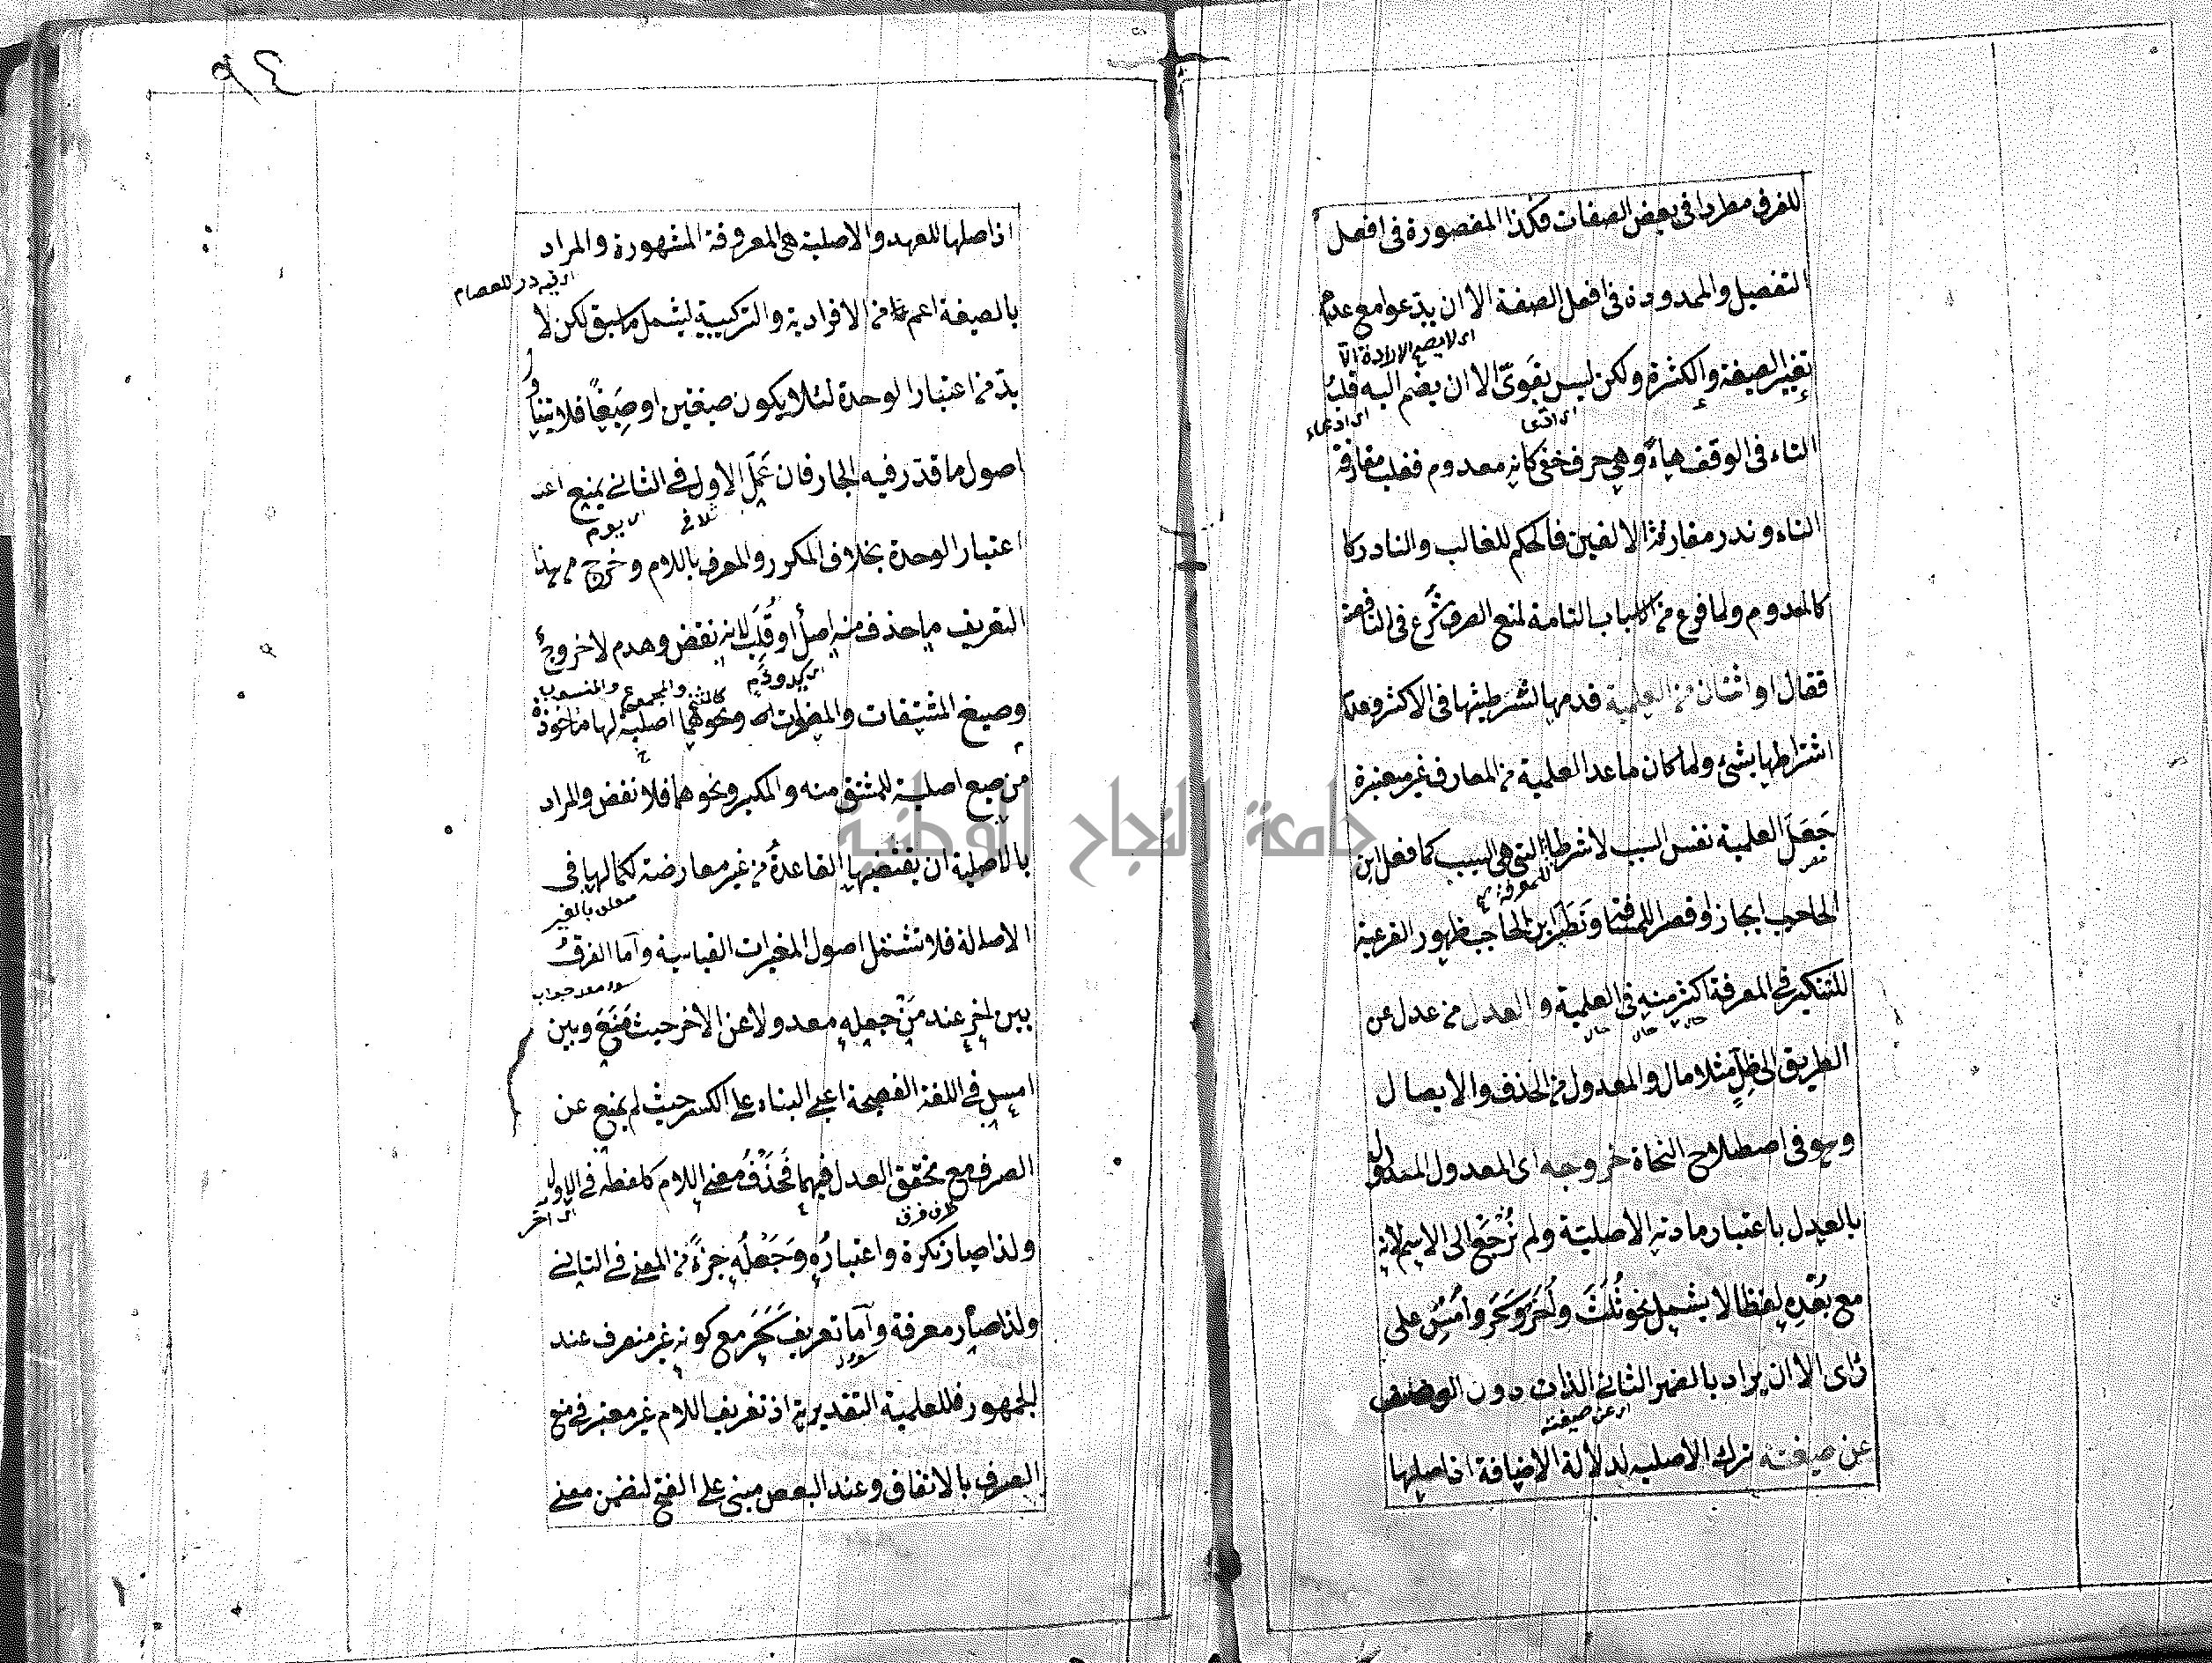 للفرق مطردا فى بعض الصفات وكذا المقصورة فى افعل
التفضيل والممدودة فى افعل الصفة الا ان يدّعوا مع عدم
اى لا يصح الارادة الا
تغيير الصيغة والكثرة ولكن ليس بقوىّ الا ان يضم اليه قلب
التاء فى الوقف هاءً وهى حرف خفى كانه معدوم فغلب مفارقة
التاء وندر مفارقة الالفين فالحكم للغالب والنادر كا
كالمعدوم ولما فرغ من الاسباب التامة لمنع الصرف شرع فى الناقصة
فقال او اثنان من العلمية قدمها لشرطيتها فى الاكثر وعدم
اشتراطها بشئ ولما كان ما عدا العلمية من المعارف غير معتبرة
جَعَلَ العلمية نفس السبب لا شرطا التى هى السبب كما فعل ابن
للمعرفة
الحاجب ايجازا وقصرا للمسافة ونَظَرُ ابن الحاجب ظهور الفرعية
للتنكير فى المعرفة اكثر منه فى العلمية والعدل من عدل عن
الطريق الى ظلٍّ مثلا مال والمعدول من الحذف والايصال
وهو فى اصطلاح النحاة خروجه اى المعدول المدلول
بالعدل باعتبار مادته الاصلية ولم نُرجِع الى الاسم لانه
مع بُعْدِهِ لفظا لا يشمل نحو ثُلَثَ واُخَرَ وسَحَرَ واَمْسِ على
رأى الا ان يراد بالضمير الثانى الذات دون الوصف
اى عن صيغته
عن صيغته ترك الاصلية لدلالة الاضافة اذ اصلها
٩٤
اذ اصلها للعهد والاصلية هى المعروفة المشهورة والمراد
بالصيغة اعم من الافرادية والتركيبية ليشمل ما سبق لكن لا
بدّ من اعتبار الوحدة لئلا يكون صيغتين او صِيَغًا فلا يتناول
اصول ما قدّر فيه الجار فان عَمَلَ الاول فى الثانى يمنع
اعتبار الوحدة بخلاف المكرر والمعرف باللام وخرج بهذا
التعريف ما حذف منه اصلٌ او قُلِبَ لانه نقض وهدم لا خروج
كالمثنى والمجموع والمنسوب
وصيغ المشتقات والمصغرات ونحوهما اصلية لها مأخوذة
من صيغ اصلية للمشتق منه والمكبر ونحوهما فلا نقض والمراد
بالاصلية ان يقتضيها القاعدة من غير معارضة لكمالها فى
متعلق بالغير
الاصالة فلا تشتمل اصول المغيرات القياسية وأما الفرق
بين اُخَر عند مَنْ جعله معدولا عن الآخر حيث مَنَعَ وبين
امسِ فى اللغة الفصيحة اعنى البناء على الكسر حيث لم يمنع عن
الصرف مع تحقق العدل فيهما فَحَذْفُ معنى اللام كلفظه فى الاول
اى اُخَر
ولذا صار نكرة واعتبارُه وجَعْلُه جزءً من المعنى فى الثانى
ولذا صار معرفة وأما تعريف سَحَرَ مع كونه غير منصرف عند
الجمهور فللعلمية التقديرية اذ تعريف اللام غير معتبر فى منع
الصرف بالاتفاق وعند البعض مبنى على الفتح لتضمن معنى
جامعة النجاح الوطنية